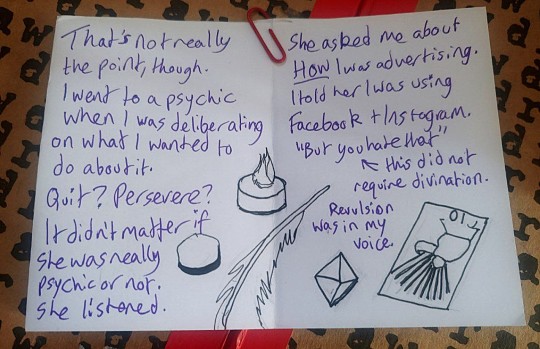 That's not really
the point, though.
I went to a psychic
when I was deliberating
on what I wanted to
do about it.
Quit? Persevere?
It didn't matter if
she was really
psychic or not.
She listened.
She asked me about
HOW I was advertising.
I told her I was using
Facebook + Instagram.
"But you hate that"
↖ this did not
require divination.
Revulsion
was in my
voice.